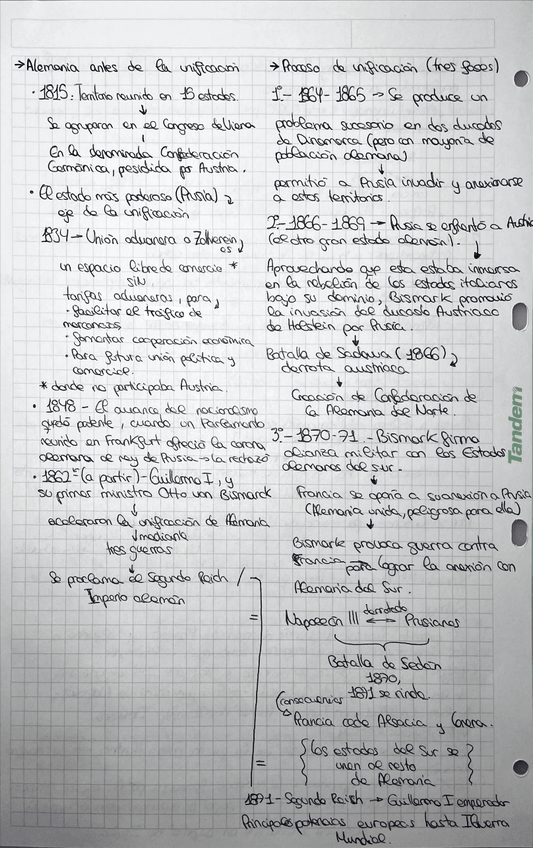 →Alemania antes de la unificación
· 1815: Territorio reunido en 15 estados.
↓
Se agruparon en el Congreso de Viena
↓
En la denominada Confederación
Germánica, presidida por Austria.
· El estado más poderoso (Prusia)
eje de la unificación
1834- Unión aduanera o Zollverein,
es
un espacio libre de comercio *
sin
tarifas aduaneras, para
· Facilitar el tráfico de
mercancías
· fomentar cooperación económica
· Para futura unión política y
comercial.
* donde no participaba Austria.
· 1848 - El avance del nacionalismo
quedó patente, cuando un Parlamento
reunido en Frankfurt ofreció la corona
alemana al rey de Prusia → la rechazó
· 1862 (a partir) - Guillermo I, y
su primer ministro Otto von Bismarck
↓
aceleraron la unificación de Alemania
↓ mediante
tres guerras
↓
Se proclama el Segundo Reich /
Imperio alemán
→ Proceso de unificación (tres fases)
1º.- 1864-1865 → Se produce un
problema sucesorio en dos ducados
de Dinamarca (pero con mayoría de
población alemana)
↓
permitió a Prusia invadir y anexionarse
a estos territorios.
2º- 1866-1869 → Prusia se enfrentó a Austria
(el otro gran estado alemán).
↓
Aprovechando que esta estaba inmersa
en la rebelión de los estados italianos
bajo su dominio, Bismark promovió
la invasión del ducado Austriaco
de Holstein por Prusia.
↓
Batalla de Sadowa (1866)
derrota austriaca
↓
Creación de Confederación de
la Alemania del Norte.
3º.- 1870-71.- Bismark firma
alianza militar con los Estados
alemanes del sur.
↓
Francia se oponía a su anexión a Prusia
(Alemania unida, peligrosa para ella)
↓
Bismark provoca guerra contra
Francia para lograr la anexión con
Alemania del Sur.
derrotado
Napoleón III ↔ Prusianos
Batalla de Sedán
1870,
1871 se rinde.
(consecuencias
→ Francia cede Alsacia y Lorena.
{ los estados del Sur se }
unen al resto
de Alemania
=
=
1871 - Segundo Reich → Guillermo I emperador
Principales potencias europeas hasta I Guerra
Mundial.
Tandem